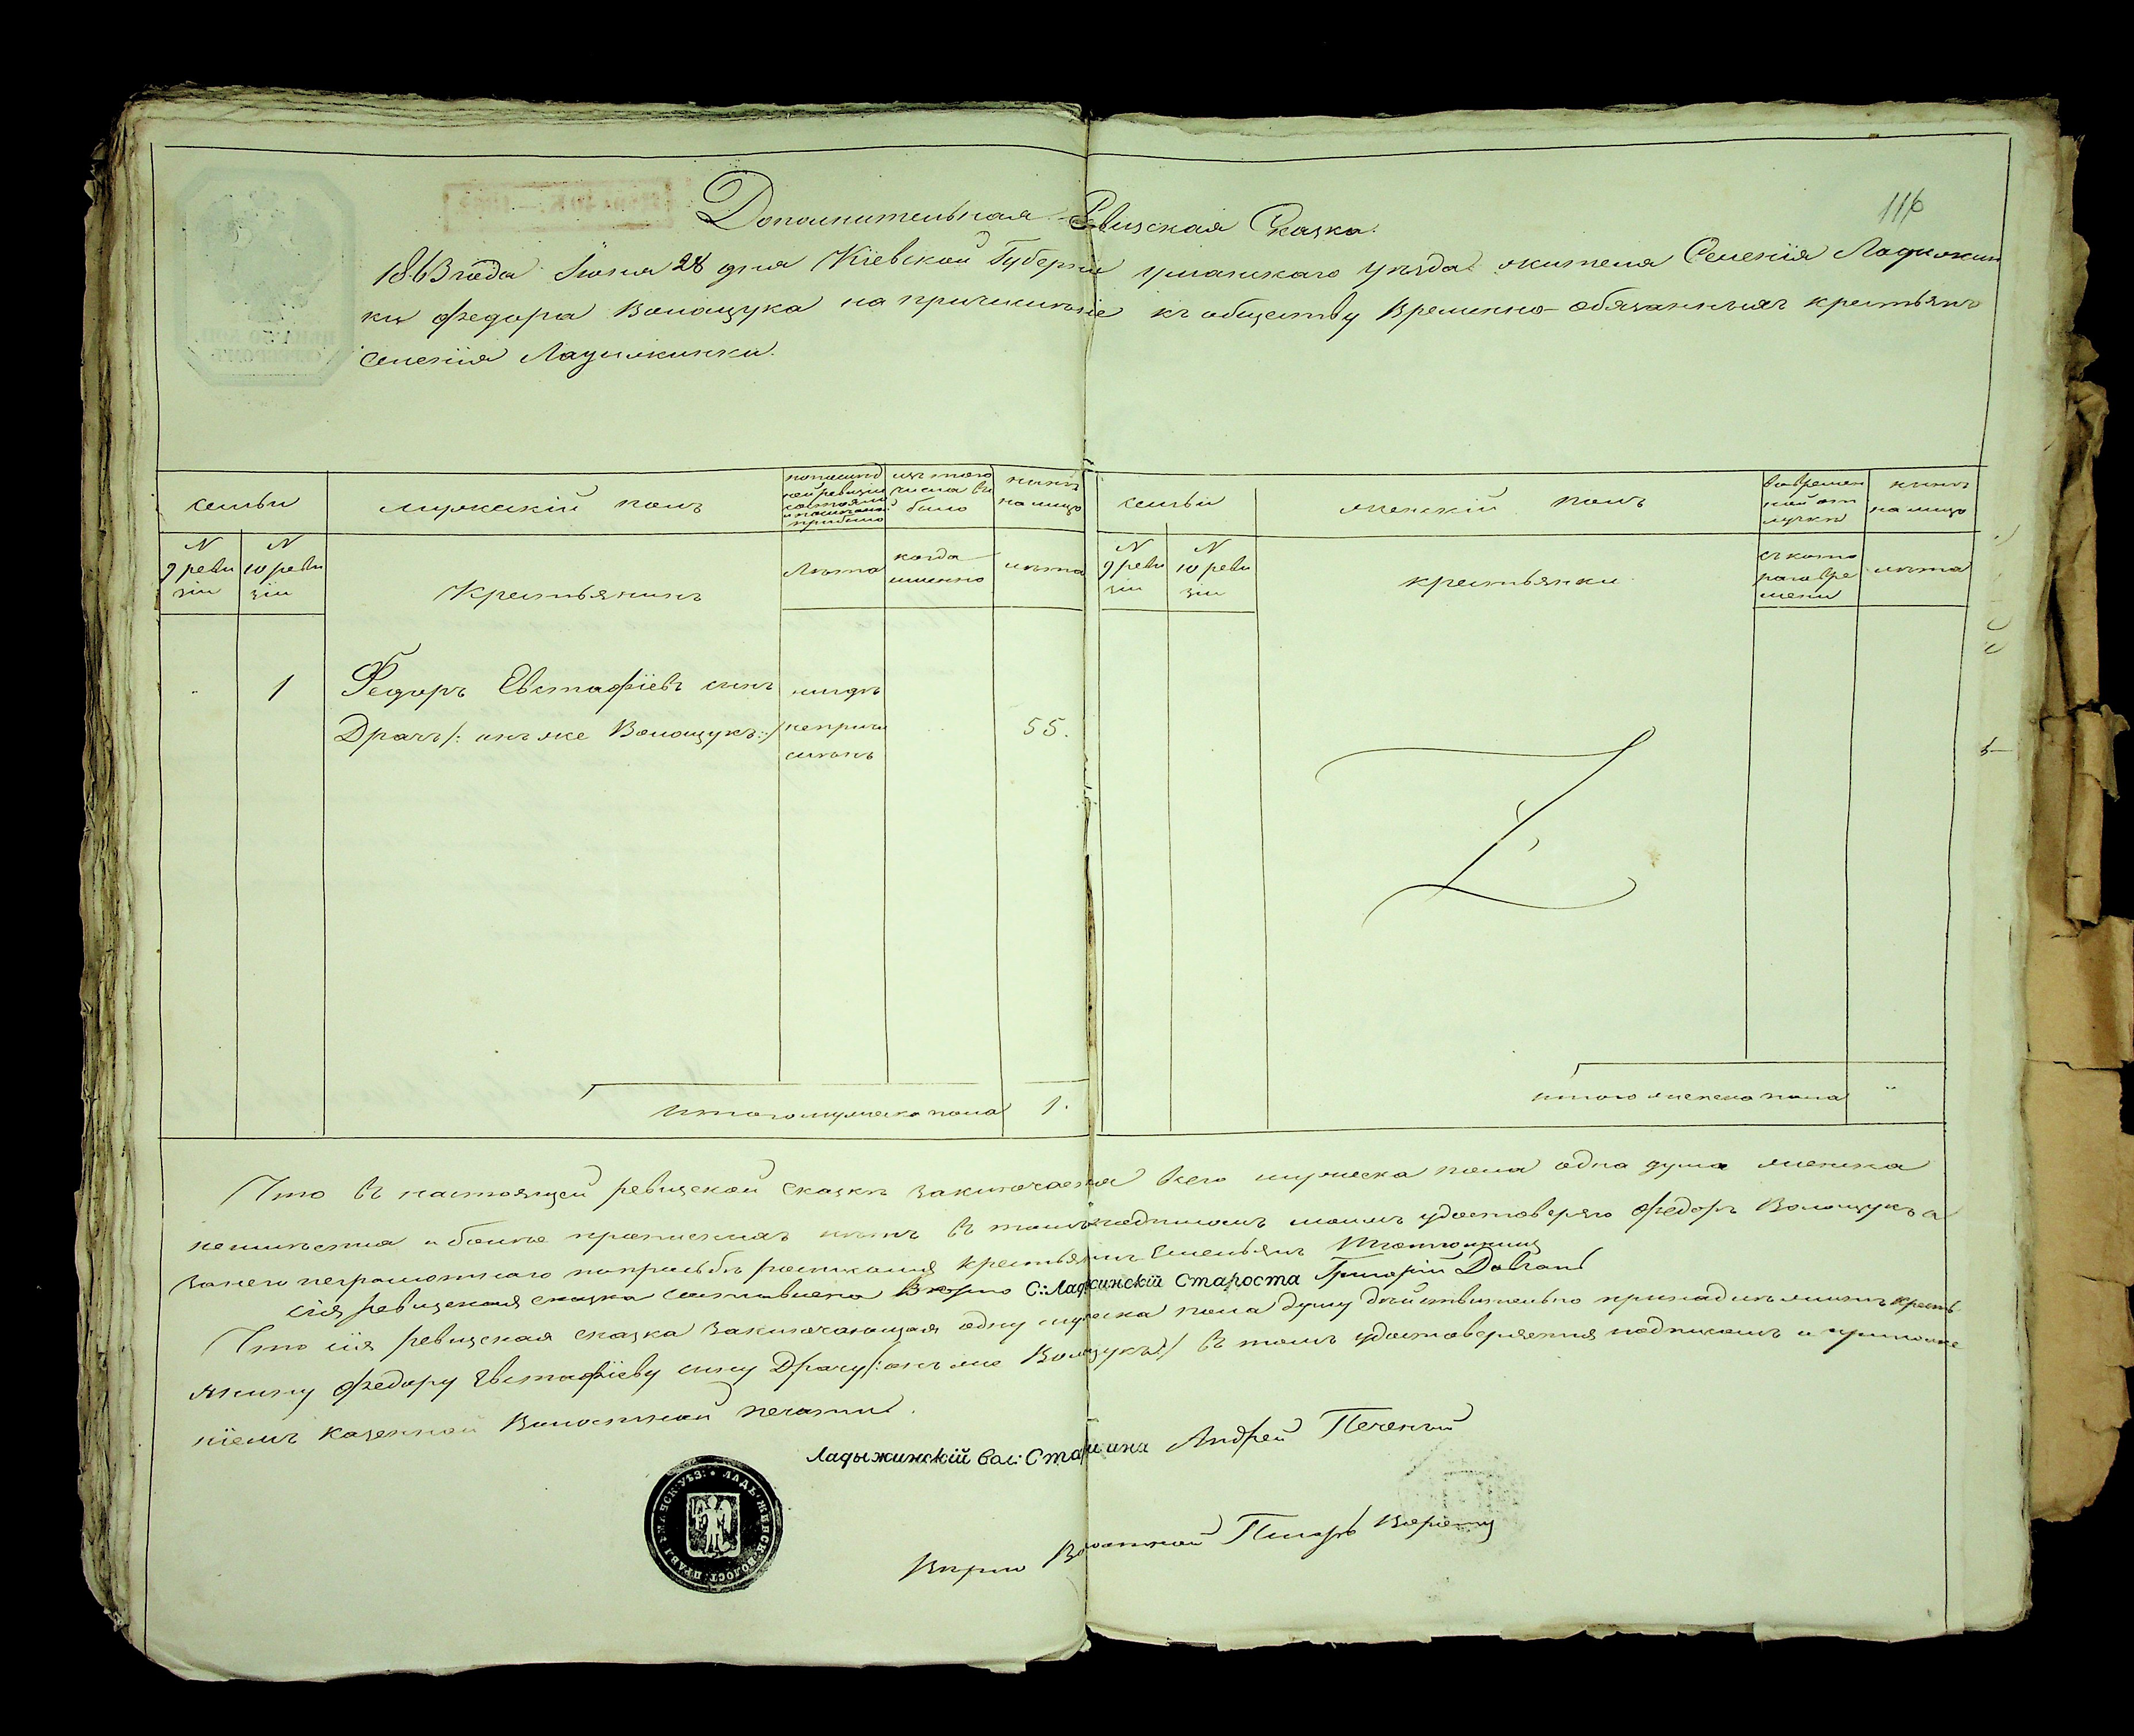 116
Дополнительная Ревизская Сказка.
1863 года Іюня 28 дня Кіевской Губерніи уманскаго уезда жителя Селенія Ладыжин
ки Федора Волощука на причисленіе къ обществу Временно-обязанныхъ крестьянъ
Селенія Ладыжинки.
семьи
мужескій полъ
по послед
ней ревизіи
состояло
и после того
прибыло
изъ того
числа вы
было
ныне
на лицо
семьи
женскій полъ
во времен
ной от
лучке
ныне
на лицо
N
9 реви
зіи
N
10 реви
зіи
Крестьянинъ
Лета
когда
именно
лета
N
9 реви
зіи
N
10 реви
зіи
крестьянки
съ кото
раго вре
мени
лета
1
Федоръ Евстафіевъ сынъ
Драчъ /: онъ же Волощукъ :/
нигде
непричи
сленъ
55.
итого мужеска пола 1.
итого женска пола "
Что въ настоящей ревизской сказке заключается всего мужеска пола одна душа женска
неимеется и более прописныхъ нетъ въ томъ подписомъ моимъ удостоверяю Федоръ Волощукъ а
занего неграмотнаго попрозьбе росписался крестьянинъ Емельянъ
сія ревизская сказка составлена Верно С: Ладыжинскій Староста Григорій
Что сія ревизская сказка заключающая одну мужеска пола душу действительно принадлежитъ кресть
янину Федору Евстафіеву сыну Драчу /: онъ же Волощукъ :/ въ томъ удостоверяется подписомъ и приложе
ніемъ казенной Волостной печати.
Ладыжинскій вол: Старшина Андрей Печеный
УМАНСК: УЕЗ: ЛАДЫЖИНСК: ВОЛОСТ: ПРАВЛ
Верно Волостной Писарь